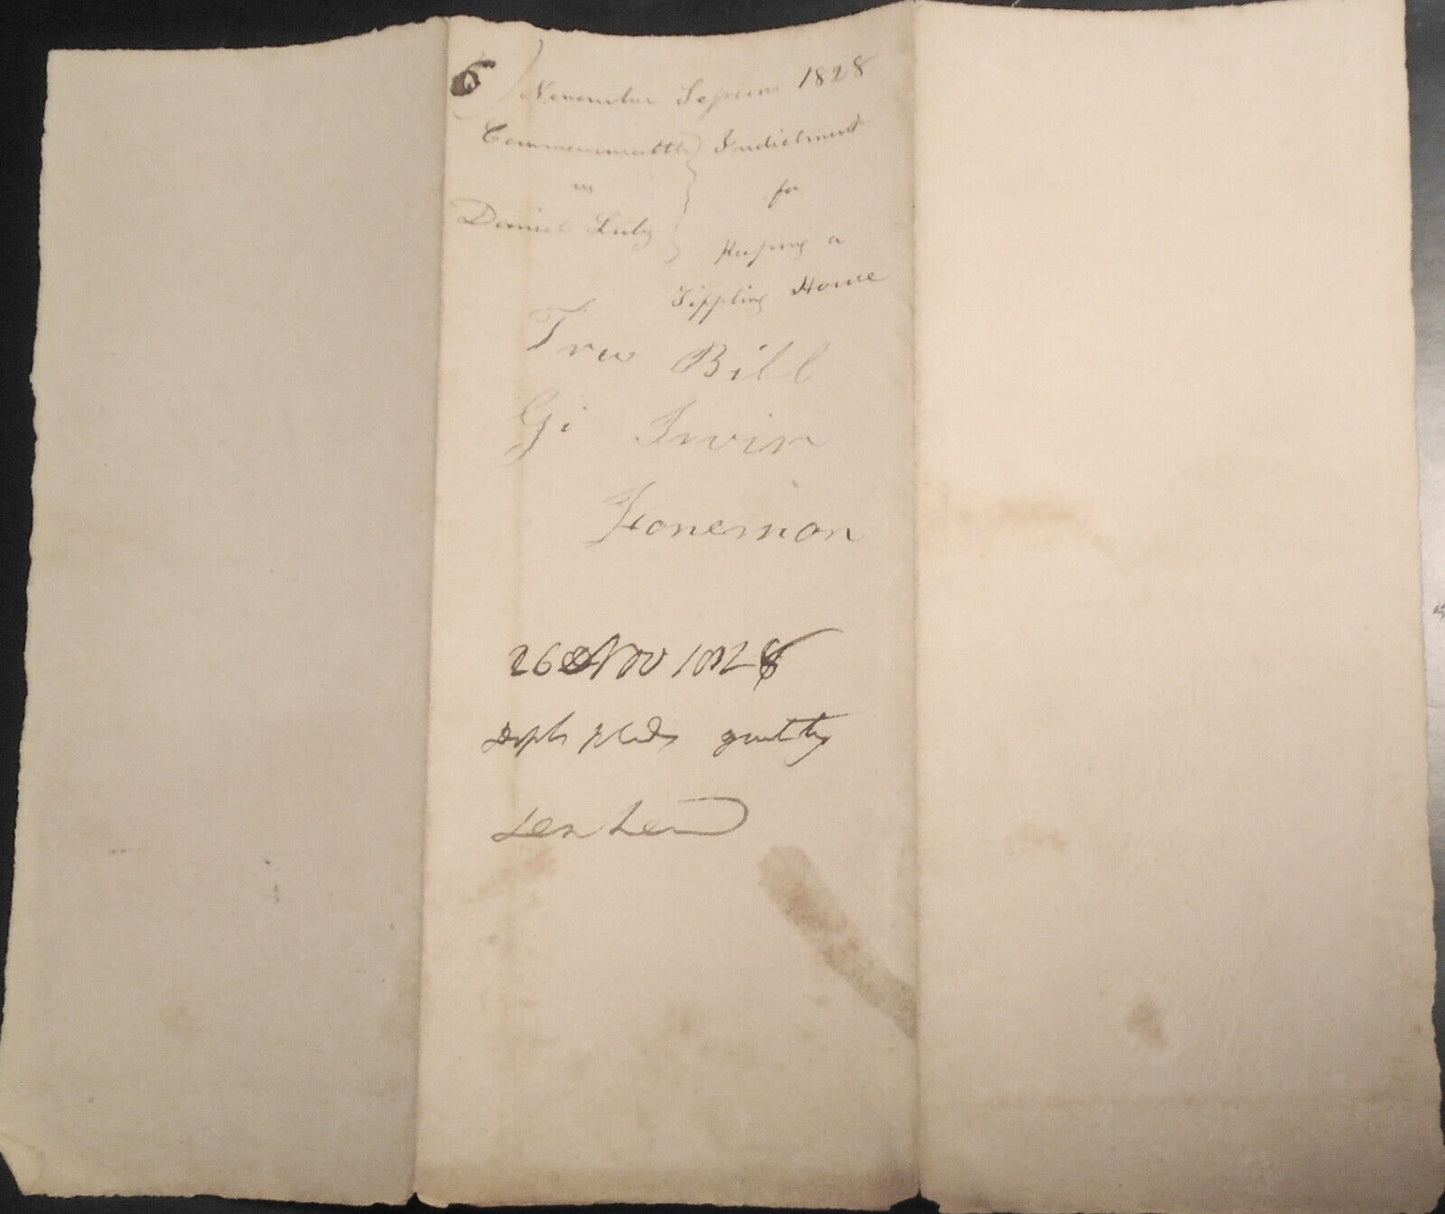 6) November Sessions 1828
Commonwealth } Indictment
vs for
Daniel Luby Keeping a
Tippling House
True Bill
Irvin
Foreman
26 Nov 1828
guilty